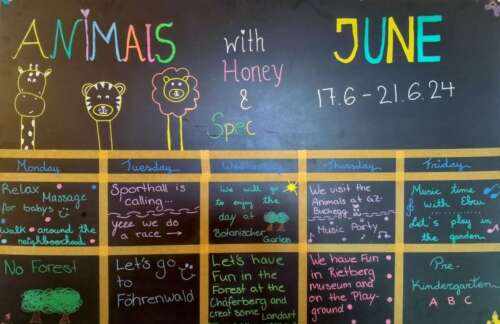 ANIMAlS
with
Honey
&
Spec
JUNE
17.6 - 21.6.24
Monday
Tuesday
Wednesday
Thursday
Friday
Relax
Massage
for babys
Walk around the
neighbourhood
Sporthall is
calling...
yeee we do
a race →
We will go
to enjoy the
day at
Botanischer
Garten
We visit the
Animals at GZ-
Buchegg
Music Party
Music time
with Ebru
Let's play in
the garden
No Forest
Let's go
to
Föhrenwald
Let's have
Fun in the
Forest at the
Chäferberg and
creat some Landart
We have Fun
in Rietberg
Museum and
on the Play-
ground
Pre-
Kindergarten
A B C